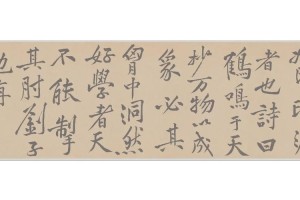 者也詩曰
鶴鳴于天
妙万物以成
象必其
胷中洞然
好學者天
不能掣
其肘劉子
也